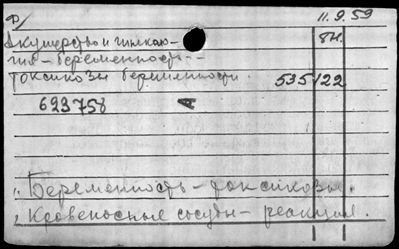 Ф/ 11.9.59
Акушерство и гинеколо- 8н.
гия - беременность -
Токсикозы беременности. 535122
623758 А
1. Беременность - токсикозы.
2. Кровеносные сосуды - реакция.